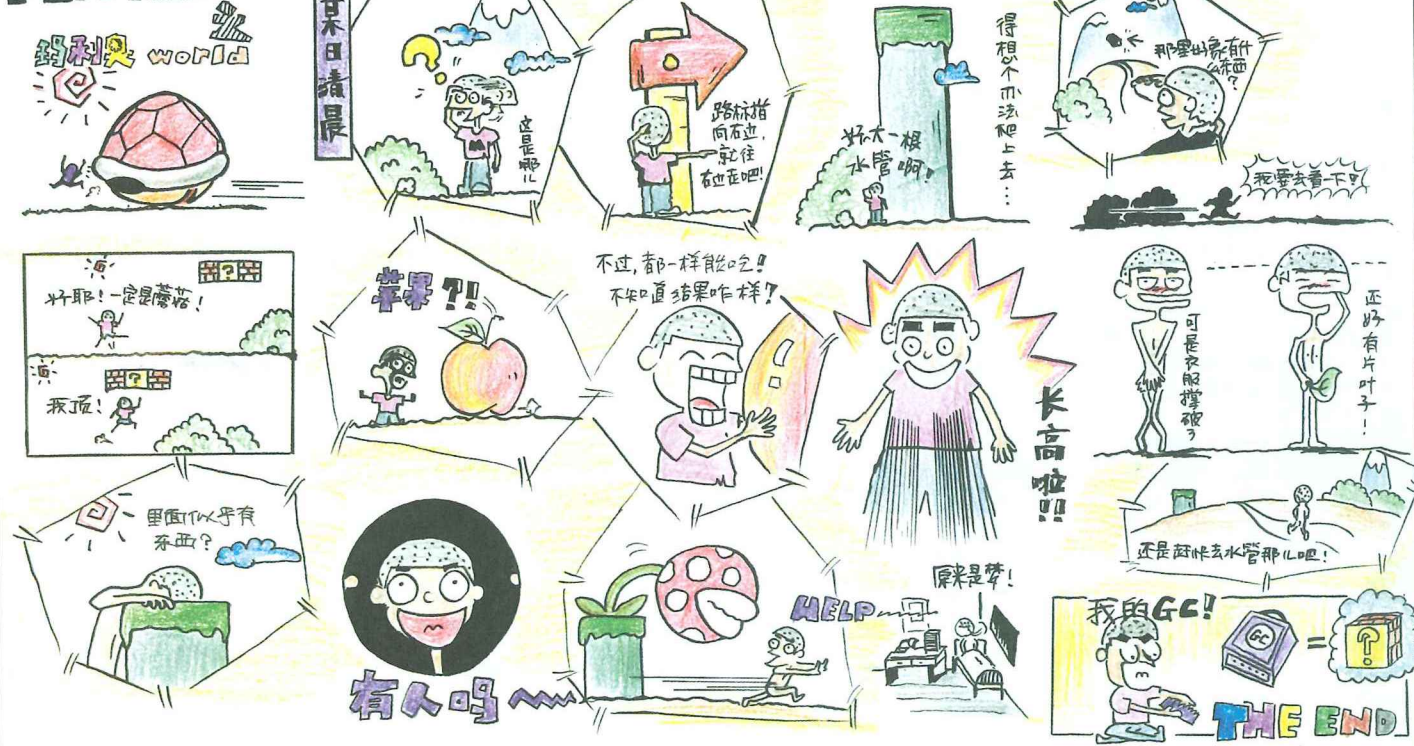 之
玛利奥 world
某日清晨
?
这是哪儿
路标指
向右边,
就往
右边走吧!
得想个办法爬上去…
好大一根
水管啊!
那里好象有什
么东西?
我要去看一下!!
?
好耶!一定是蘑菇!
?
我顶!
苹果?!
不过,都一样能吃!
不知道结果咋样?
长高啦!!
可是衣服撑破了
还好有片叶子!
还是赶快去水管那儿吧!
里面似乎有
东西?
有人吗
HELP
原来是梦!
我的GC!
GC
=
?
THE END